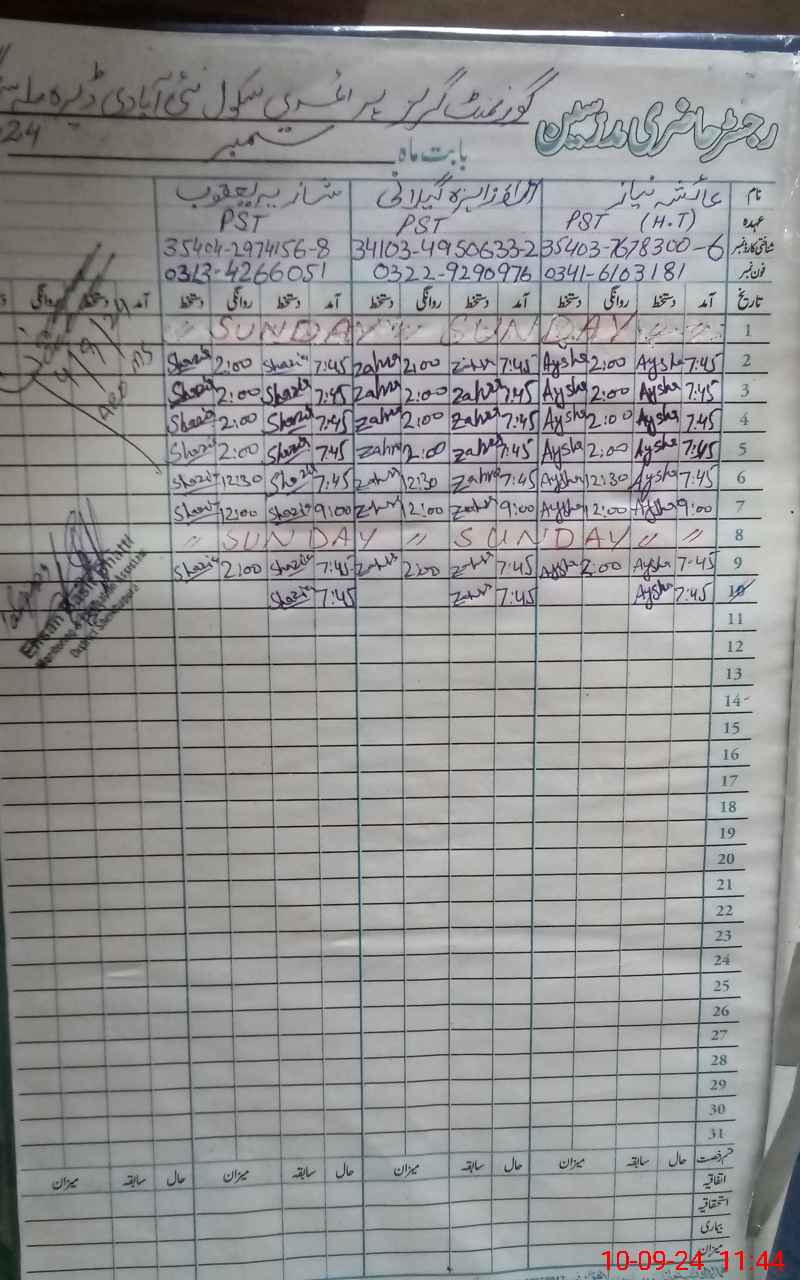 رجسٹر حاضری مدرسین
گورنمنٹ گرلز پرائمری سکول نئی آبادی ڈیرہ
بابت ماہ ستمبر 24
نام عائشہ نیاز زاہرہ گیلانی شازیہ یعقوب
عہدہ PST (H.T) PST PST
شناختی کارڈ نمبر 35403-7678300-6 34103-4950633-2 35404-2974156-8
فون نمبر 0341-6103181 0322-9290976 0313-4266051
تاریخ آمد دستخط روانگی دستخط آمد دستخط روانگی دستخط آمد دستخط روانگی دستخط آمد دستخط روانگی
1 〃 SUNDAY 〃 SUNDAY 〃 〃
2 7:45 Aysha 2:00 Aysha 7:45 Zahra 2:00 Zahra 7:45 Shazia 2:00 Shazia
3 7:45 Aysha 2:00 Aysha 7:45 Zahra 2:00 Zahra 7:45 Shazia 2:00 Shazia
4 7:45 Aysha 2:00 Aysha 7:45 Zahra 2:00 Zahra 7:45 Shazia 2:00 Shazia
5 7:45 Aysha 2:00 Aysha 7:45 Zahra 2:00 Zahra 7:45 Shazia 2:00 Shazia
6 7:45 Aysha 12:30 Aysha 7:45 Zahra 12:30 Zahra 7:45 Shazia 12:30 Shazia
7 9:00 Aysha 12:00 Aysha 9:00 Zahra 12:00 Zahra 9:00 Shazia 12:00 Shazia
8 〃 SUNDAY 〃 SUNDAY 〃 〃
9 7:45 Aysha 2:00 Aysha 7:45 Zahra 2:00 Zahra 7:45 Shazia 2:00 Shazia
10 7:45 Aysha 7:45 Zahra 7:45 Shazia
11
12
13
14
15
16
17
18
19
20
21
22
23
24
25
26
27
28
29
30
31
قسم رخصت حال سابقہ میزان حال سابقہ میزان حال سابقہ میزان حال سابقہ میزان
اتفاقیہ
استحقاقیہ
بیماری
میزان
4/9/24
10-09-24 11:44